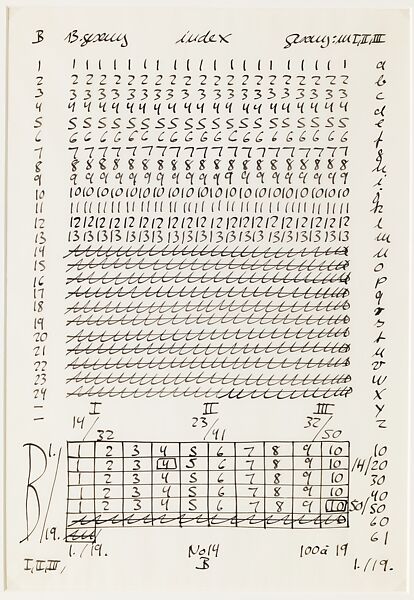 B 13. gesang index gesang: m I, II, III
1 1 1 1 1 1 1 1 1 1 1 1 1 1 1 1 1 1 1 1 a
2 2 2 2 2 2 2 2 2 2 2 2 2 2 2 2 2 2 2 2 b
3 3 3 3 3 3 3 3 3 3 3 3 3 3 3 3 3 3 3 3 c
4 4 4 4 4 4 4 4 4 4 4 4 4 4 4 4 4 4 4 4 d
5 5 5 5 5 5 5 5 5 5 5 5 5 5 5 5 5 5 5 5 e
6 6 6 6 6 6 6 6 6 6 6 6 6 6 6 6 6 6 6 6 f
7 7 7 7 7 7 7 7 7 7 7 7 7 7 7 7 7 7 7 7 g
8 8 8 8 8 8 8 8 8 8 8 8 8 8 8 8 8 8 8 8 h
9 9 9 9 9 9 9 9 9 9 9 9 9 9 9 9 9 9 9 9 i
10 10 10 10 10 10 10 10 10 10 10 10 10 10 10 10 10 10 10 10 j
11 11 11 11 11 11 11 11 11 11 11 11 11 11 11 11 11 11 11 11 k
12 12 12 12 12 12 12 12 12 12 12 12 12 12 12 12 12 12 12 12 l
13 13 13 13 13 13 13 13 13 13 13 13 13 13 13 13 13 13 13 13 m
14 n
15 o
16 p
17 q
18 r
19 s
20 t
21 u
22 v
23 w
24 x
– I II III y
– 14/32 23/41 32/50 z
B 1./19.
1 2 3 4 5 6 7 8 9 10 10
1 2 3 4 5 6 7 8 9 10 14/20
1 2 3 4 5 6 7 8 9 10 30
1 2 3 4 5 6 7 8 9 10 40
1 2 3 4 5 6 7 8 9 10 50/50
60
61
1./19. No 14 100 à 19
I, II, III, B 1./19.